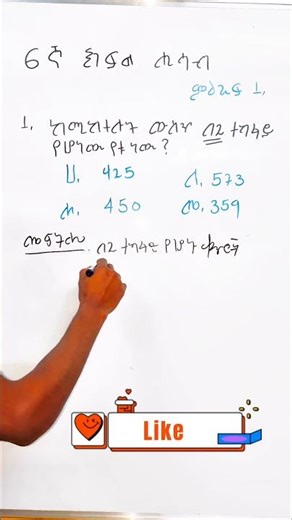 6ኛ ክፍል ሒሳብ
ምዕራፍ 1.
1. ከሚከተሉት ውስጥ ለ2 ተካፋይ
የሆነው የቱ ነው?
ሀ. 425 ሐ. 573
ለ. 450 መ. 359
መፍትሔ. ለ2 ተካፋይ የሆኑ ቁጥሮች
Like